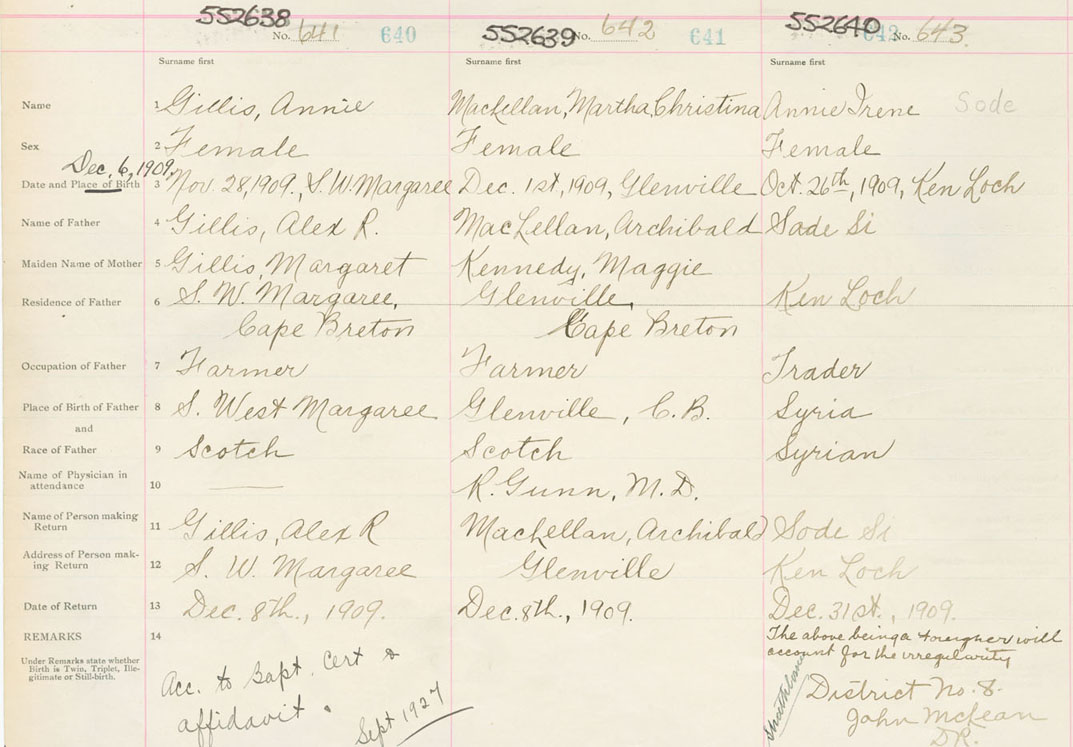 552638 552639 552640
No. 641 640 No. 642 641 642 No. 643.
Surname first Surname first Surname first
Name 1 Gillis, Annie MacLellan, Martha Christina Annie Irene Sode
Sex 2 Female Female Female
Dec. 6, 1909.
Date and Place of Birth 3 Nov. 28, 1909., S. W. Margaree Dec. 1st, 1909, Glenville Oct. 26th, 1909, Ken Loch
Name of Father 4 Gillis, Alex R. MacLellan, Archibald Sade Si
Maiden Name of Mother 5 Gillis, Margaret Kennedy, Maggie
Residence of Father 6 S. W. Margaree, Glenville, Ken Loch
Cape Breton Cape Breton
Occupation of Father 7 Farmer Farmer Trader
Place of Birth of Father 8 S. West Margaree Glenville, C. B. Syria
and
Race of Father 9 Scotch Scotch Syrian
Name of Physician in
attendance 10 —— R. Gunn, M. D.
Name of Person making
Return 11 Gillis, Alex R MacLellan, Archibald Sode Si
Address of Person mak-
ing Return 12 S. W. Margaree Glenville Ken Loch
Date of Return 13 Dec. 8th., 1909. Dec. 8th., 1909. Dec. 31st., 1909.
REMARKS 14 The above being a foreigner will
account for the irregularity
Under Remarks state whether
Birth is Twin, Triplet, Ille-
gitimate or Still-birth.
Acc. to Bapt. Cert &
affidavit.
Sept 1927
Strathlorne
District No. 8.
John McLean
D.R.